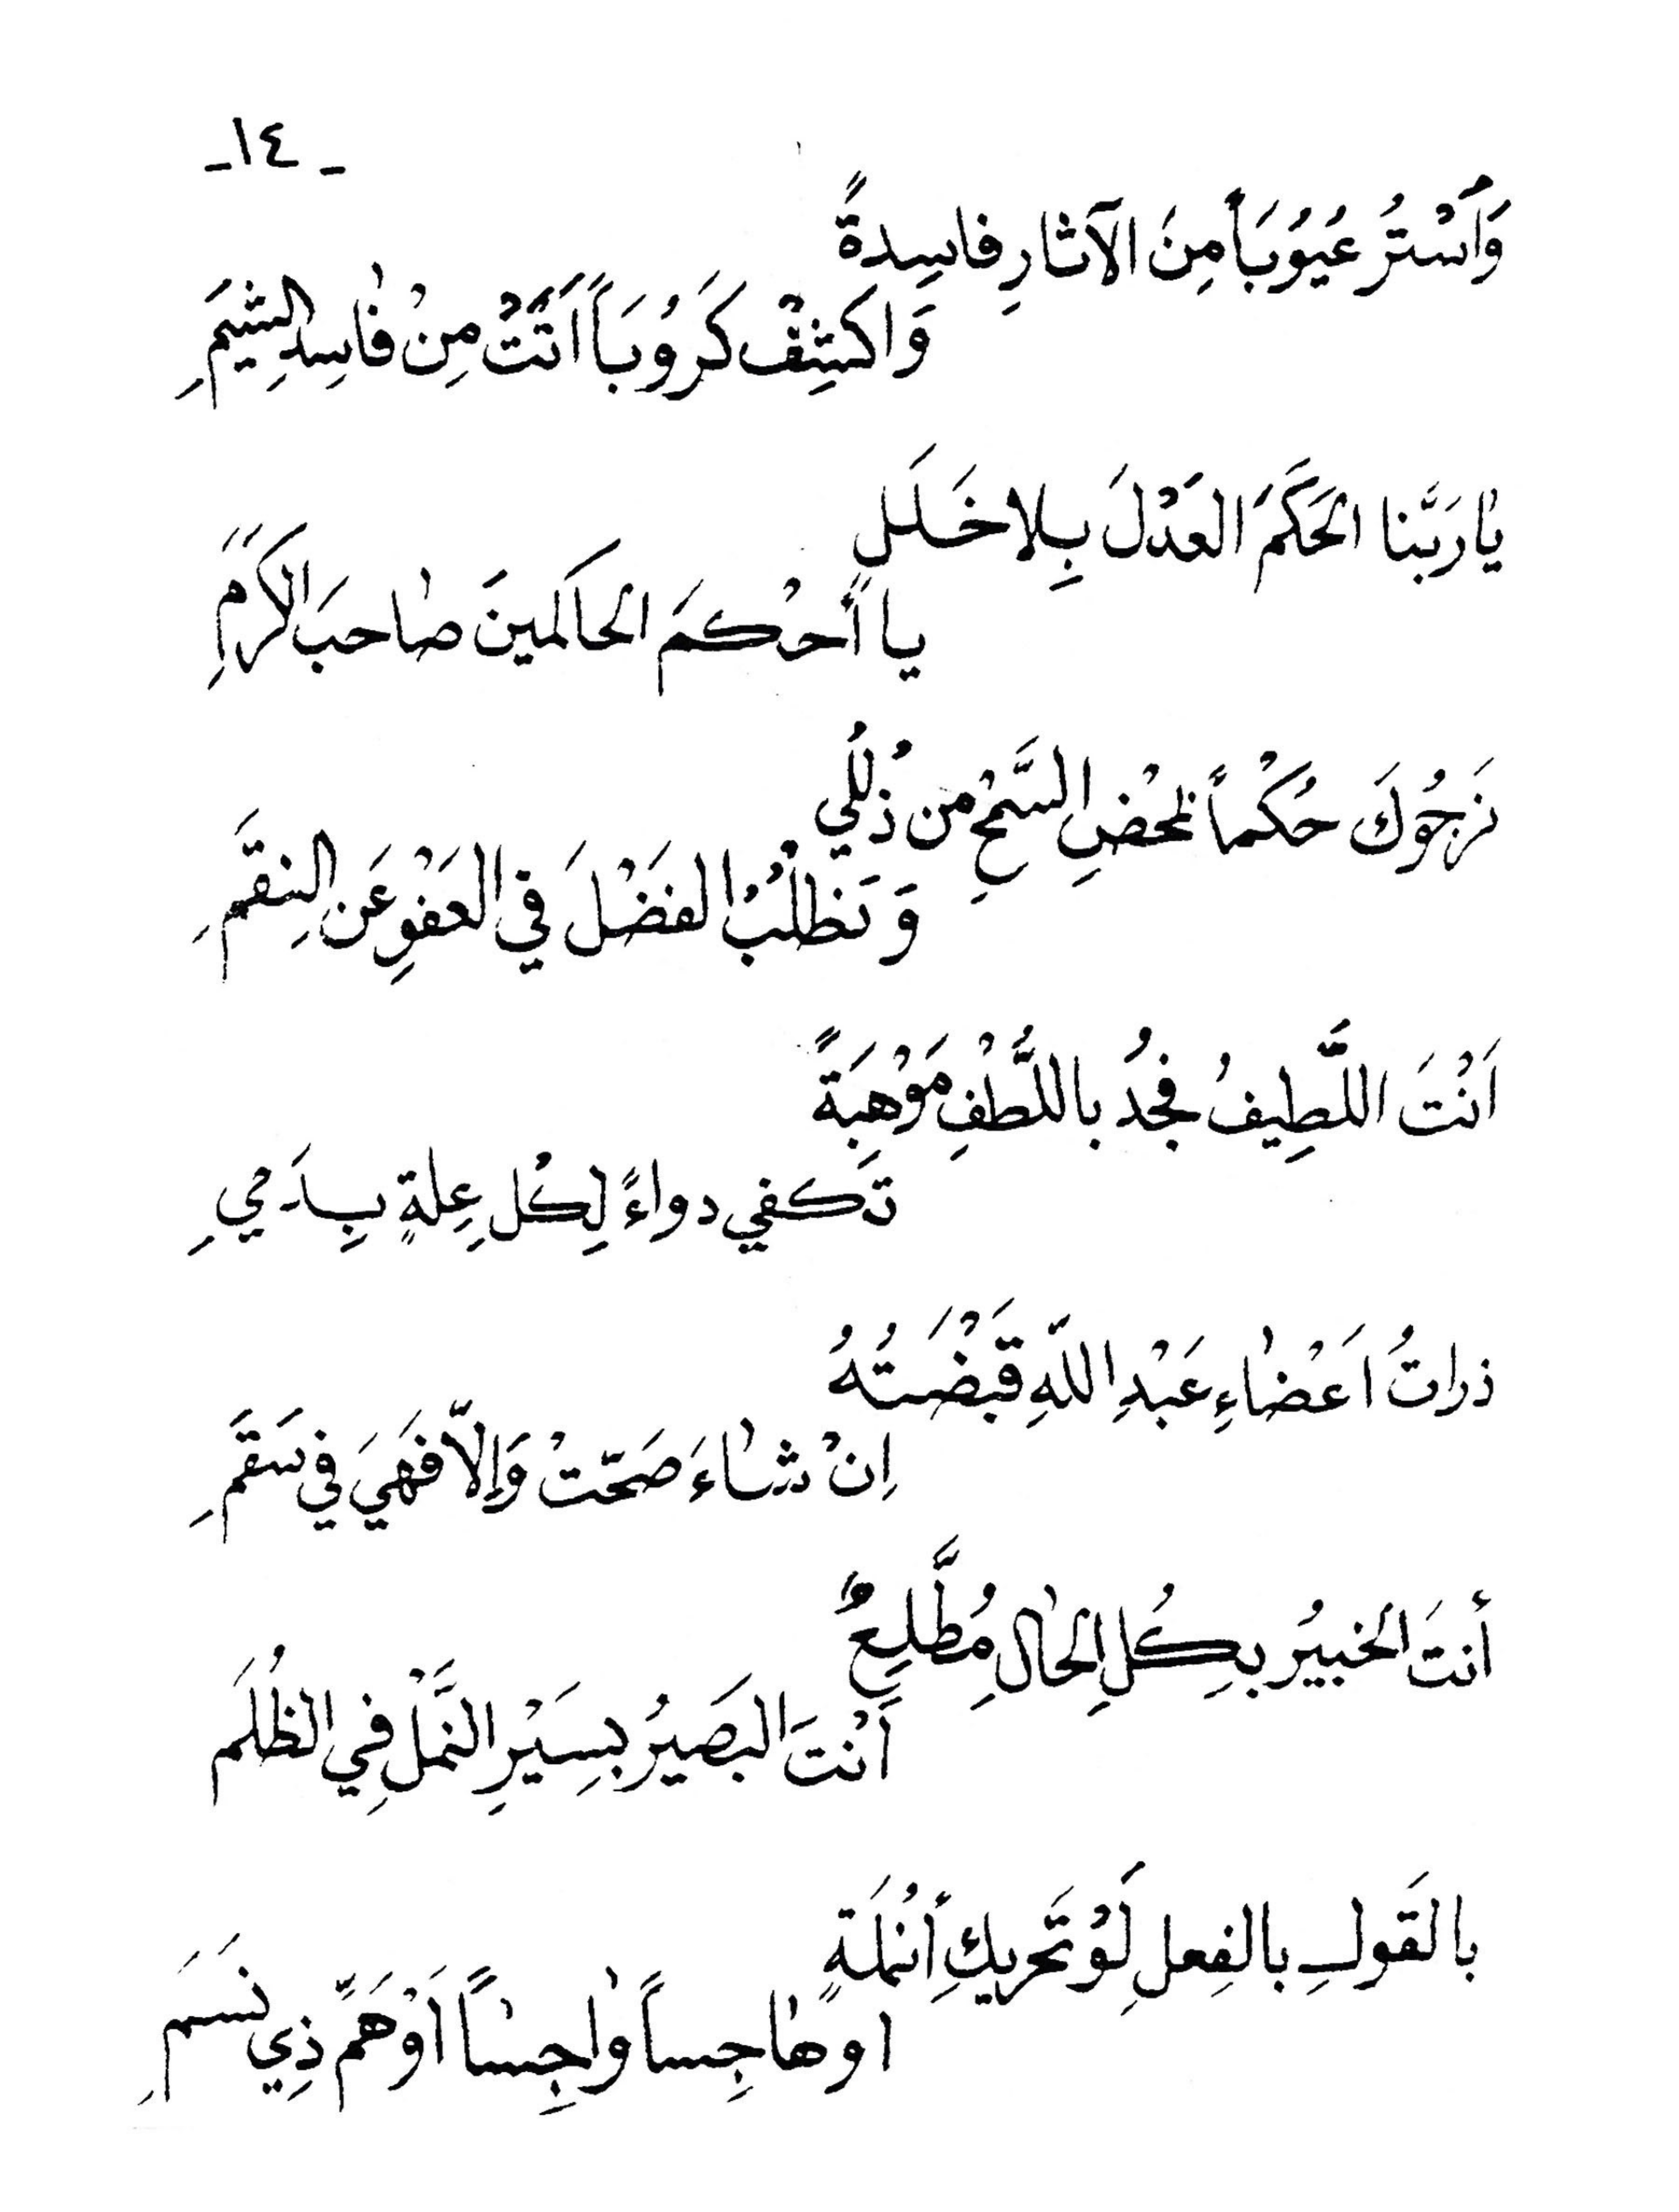 ـ ١٤ ـ
وَاَسْتُرْ عُيُوُبَاً مِنَ الآثارِ فاسِدِةً
وَاكشِفْ كَرُوُبَاً اَتَتْ مِنْ فٰاسِدِ الشِيَمِ
يٰارَبَّنا الحَكَمَ العَدْلَ بِلا خَلَلٍ
يا أَحْكمَ الحاكمينَ صٰاحبَ الكَرَمِ
نَرجُوُكَ حُكْماً لمحْضِ السَّمْحِ من ذُلُلي
وَنَطْلُبُ الفَضْلَ في العَفْوِ عَنِ النِقَمِ
اَنْتَ اللَّطِيفُ فجُدْ باللُّطْفِ مَوْهِبَةً
تَكفي دواءً لِكُل عِلةٍ بِدَميِ
ذراتُ اَعْضٰاءِ عَبْدِ اللّهِ قَبْضَتُهُ
اِنْ شٰاءَ صَحّتْ وَإلاّ فَهَيَ في سَقَمِ
أنتَ الخبيُر بِكُلِ الحٰالِ مُطَّلِعٌ
أَنْتَ البَصَيُر بسِيَرِ النَّمْلِ فِي الظُلَمَ
بالقَولِ بالفِعلِ لَوْ تَحَريكِ أنُمَلَةٍ
اوهٰاجِساً وٰاجِسٰاً اَوْهَمَّ ذِي نَسَمَِ